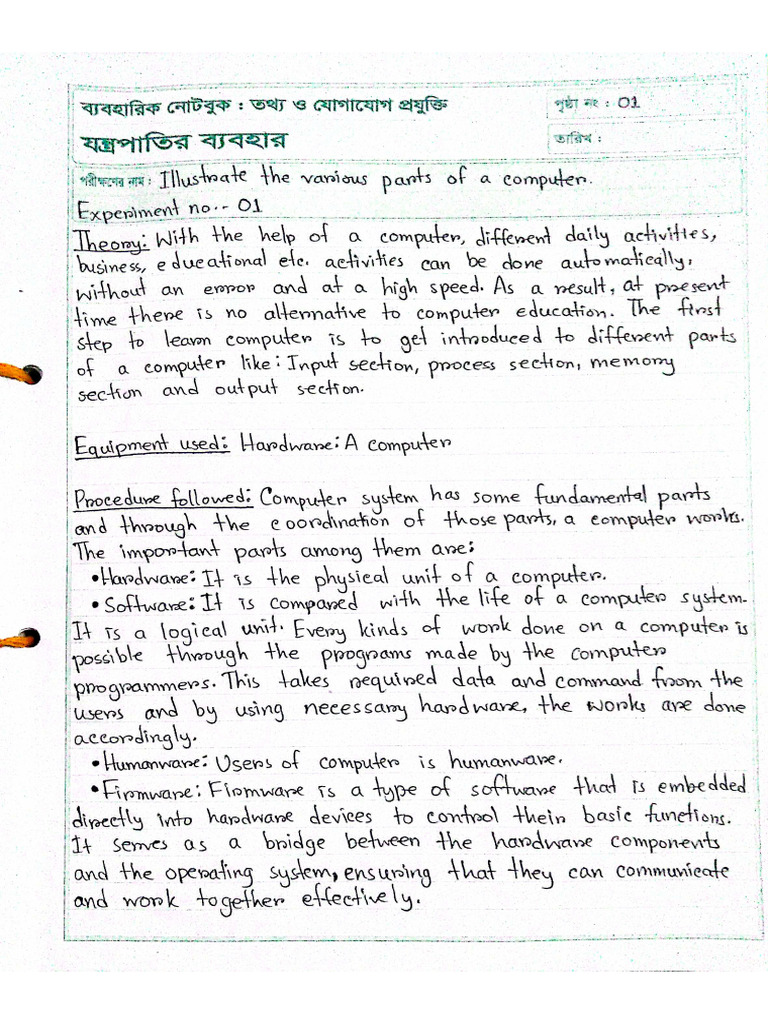 ব্যবহারিক নোটবুক : তথ্য ও যোগাযোগ প্রযুক্তি
পৃষ্ঠা নং : 01
যন্ত্রপাতির ব্যবহার
তারিখ :
পরীক্ষণের নাম : Illustrate the various parts of a computer.
Experiment no.- 01
Theory: With the help of a computer, different daily activities,
business, educational etc. activities can be done automatically,
without an error and at a high speed. As a result, at present
time there is no alternative to computer education. The first
step to learn computer is to get introduced to different parts
of a computer like: Input section, process section, memory
section and output section.
Equipment used: Hardware: A computer
Procedure followed: Computer system has some fundamental parts
and through the coordination of those parts, a computer works.
The important parts among them are:
• Hardware: It is the physical unit of a computer.
• Software: It is compared with the life of a computer system.
It is a logical unit. Every kinds of work done on a computer is
possible through the programs made by the computer
programmers. This takes required data and command from the
users and by using necessary hardware, the works are done
accordingly.
• Humanware: Users of computer is humanware.
• Firmware: Firmware is a type of software that is embedded
directly into hardware devices to control their basic functions.
It serves as a bridge between the hardware components
and the operating system, ensuring that they can communicate
and work together effectively.